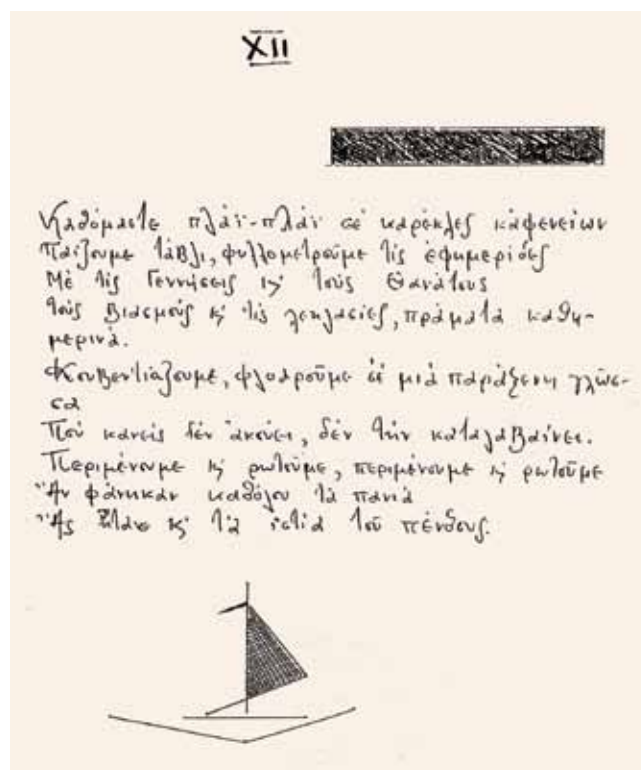 XII
Καθόμαστε πλάϊ-πλάϊ σέ καρέκλες καφενείων
Παίζουμε τάβλι, φυλλομετροῦμε τίς ἐφημερίδες
Μέ τίς Γεννήσεις κ' τούς Θανάτους
τούς Βιασμούς κ' τίς λεηλασίες, πράματα καθη-
μερινά.
Κουβεντιάζουμε, φλυαροῦμε σέ μιά παράξενη γλῶσ-
σα
Πού κανείς δέν ἀκούει, δέν τήν καταλαβαίνει.
Περιμένουμε κ' ρωτοῦμε, περιμένουμε κ' ρωτοῦμε
Ἄν φάνηκαν καθόλου τά πανιά
Ἄς ἦταν κ' τά ἱστία τοῦ πένθους.